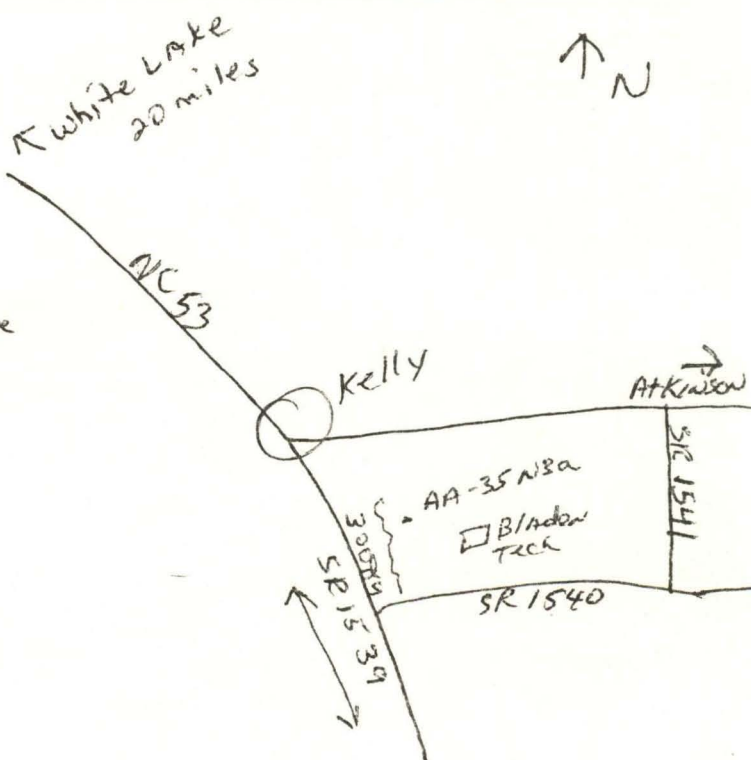 White Lake
20 miles
N
NC 53
e
Kelly
Atkinson
SR 1541
AA-35 N13a
Bladon
Tech
SR 1540
SR 1539